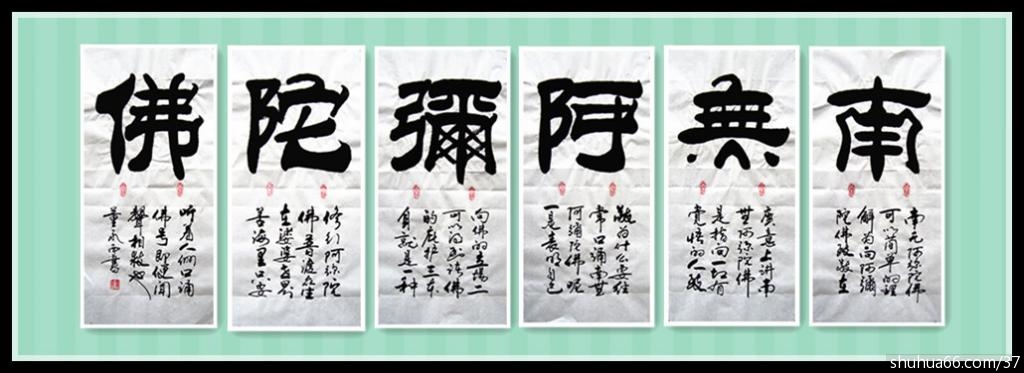 南
南无阿弥陀佛
可以简单的理
解为向阿彌
陀佛致敬在
無
廣意上讲南
無阿弥陀佛
是指向一切有
覺悟的人致
阿
敬为什么要经
常口诵南無
阿彌陀佛呢
一是表明自己
彌
向佛的立場二
可以为求诸佛
的庇护三本
身就是一种
陀
修行阿弥陀
佛普渡众生
在娑婆世界
苦海里只要
佛
听着人们口诵
佛号即使闻
聲相
書
shuhua66.com/37